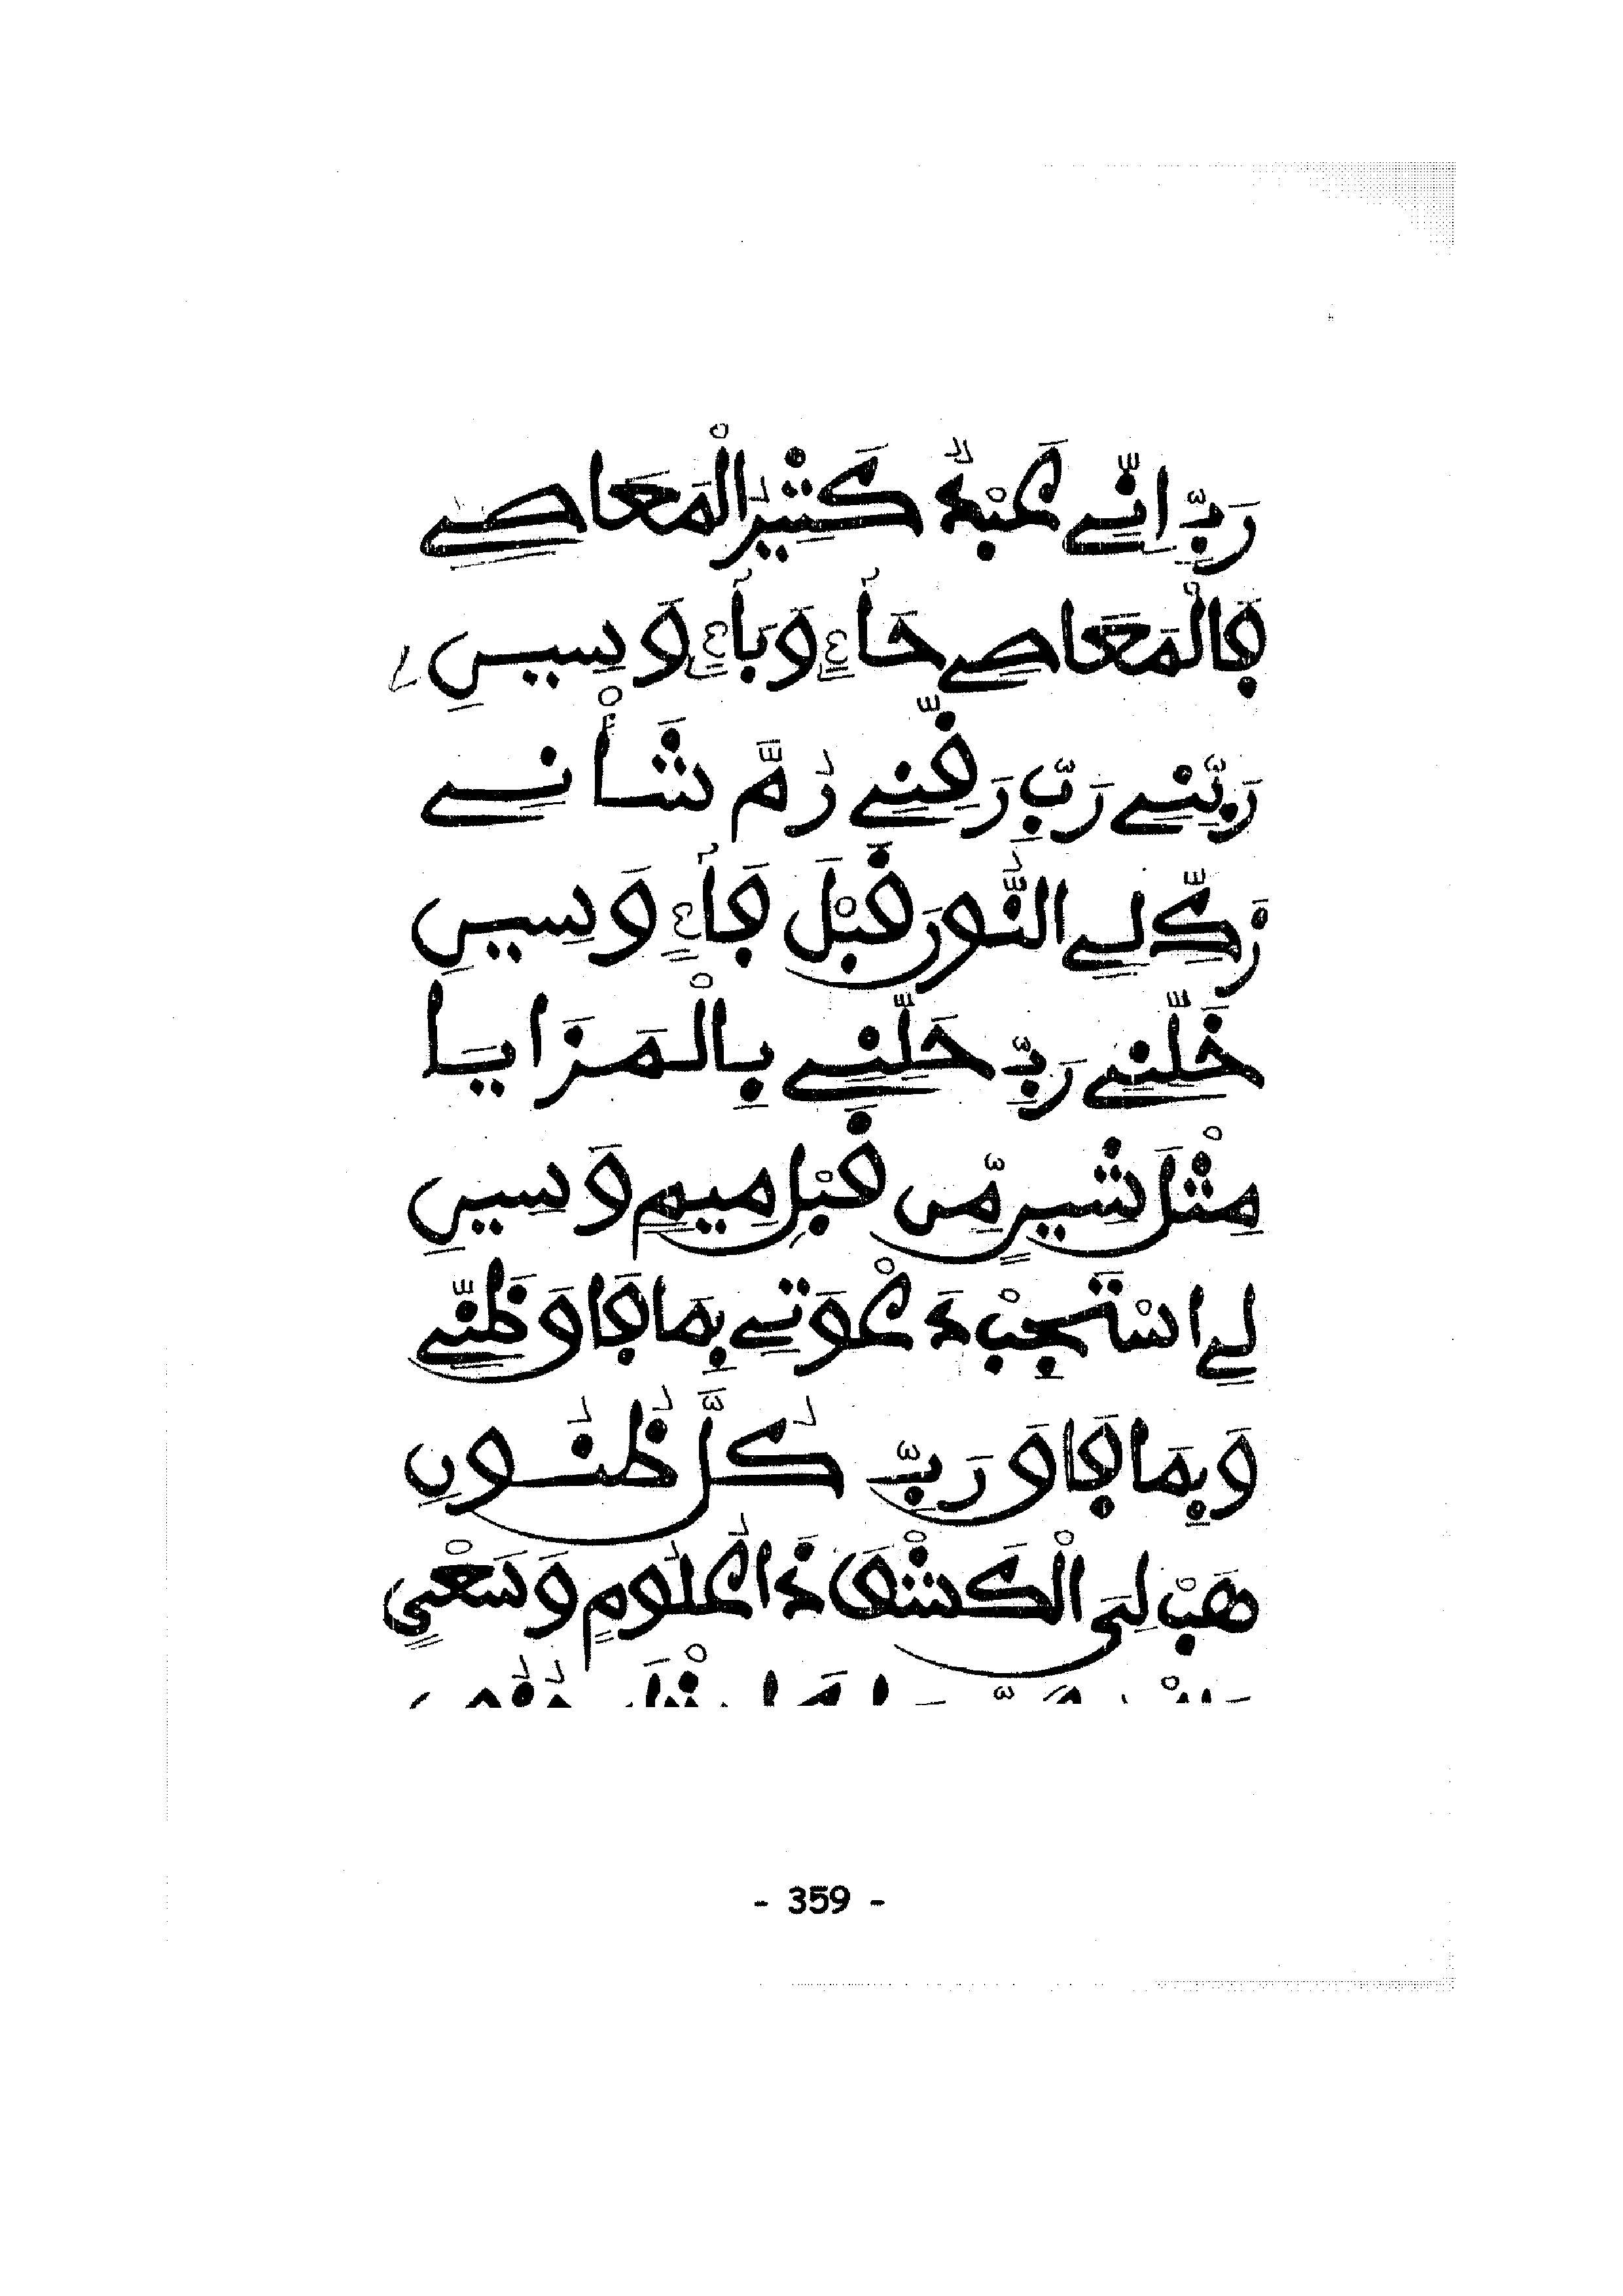 رَبِّ إِنِّے عَبْدٌ كَثِيرُ الْمَعَاصِے
فَالْمَعَاصِے حَاءٍ وَبَاءٍ وَسِيسِ
رَبِّنِے رَبِّ رَقِّنِے رُمَّ شَأْنِے
زَكِّ لِے النُّورَ قَبْلَ فَاءٍ وَسِيسِ
خَلِّنِے رَبِّ حَلِّنِے بِالْمَزَايَا
مِثْلَ شِيرٍ مِّن قَبْلِ مِيمٍ وَسِيسِ
لِے اسْتَجِبْ دَعْوَتِے بِمَا فَاوَ ظَنِّے
وَبِمَا فَاوَ رَبِّ كُلَّ ظُنُونِ
هَبْ لِيَ الْكَشْفَ ذَا عُلُومٍ وَسَعْيٍ
- 359 -